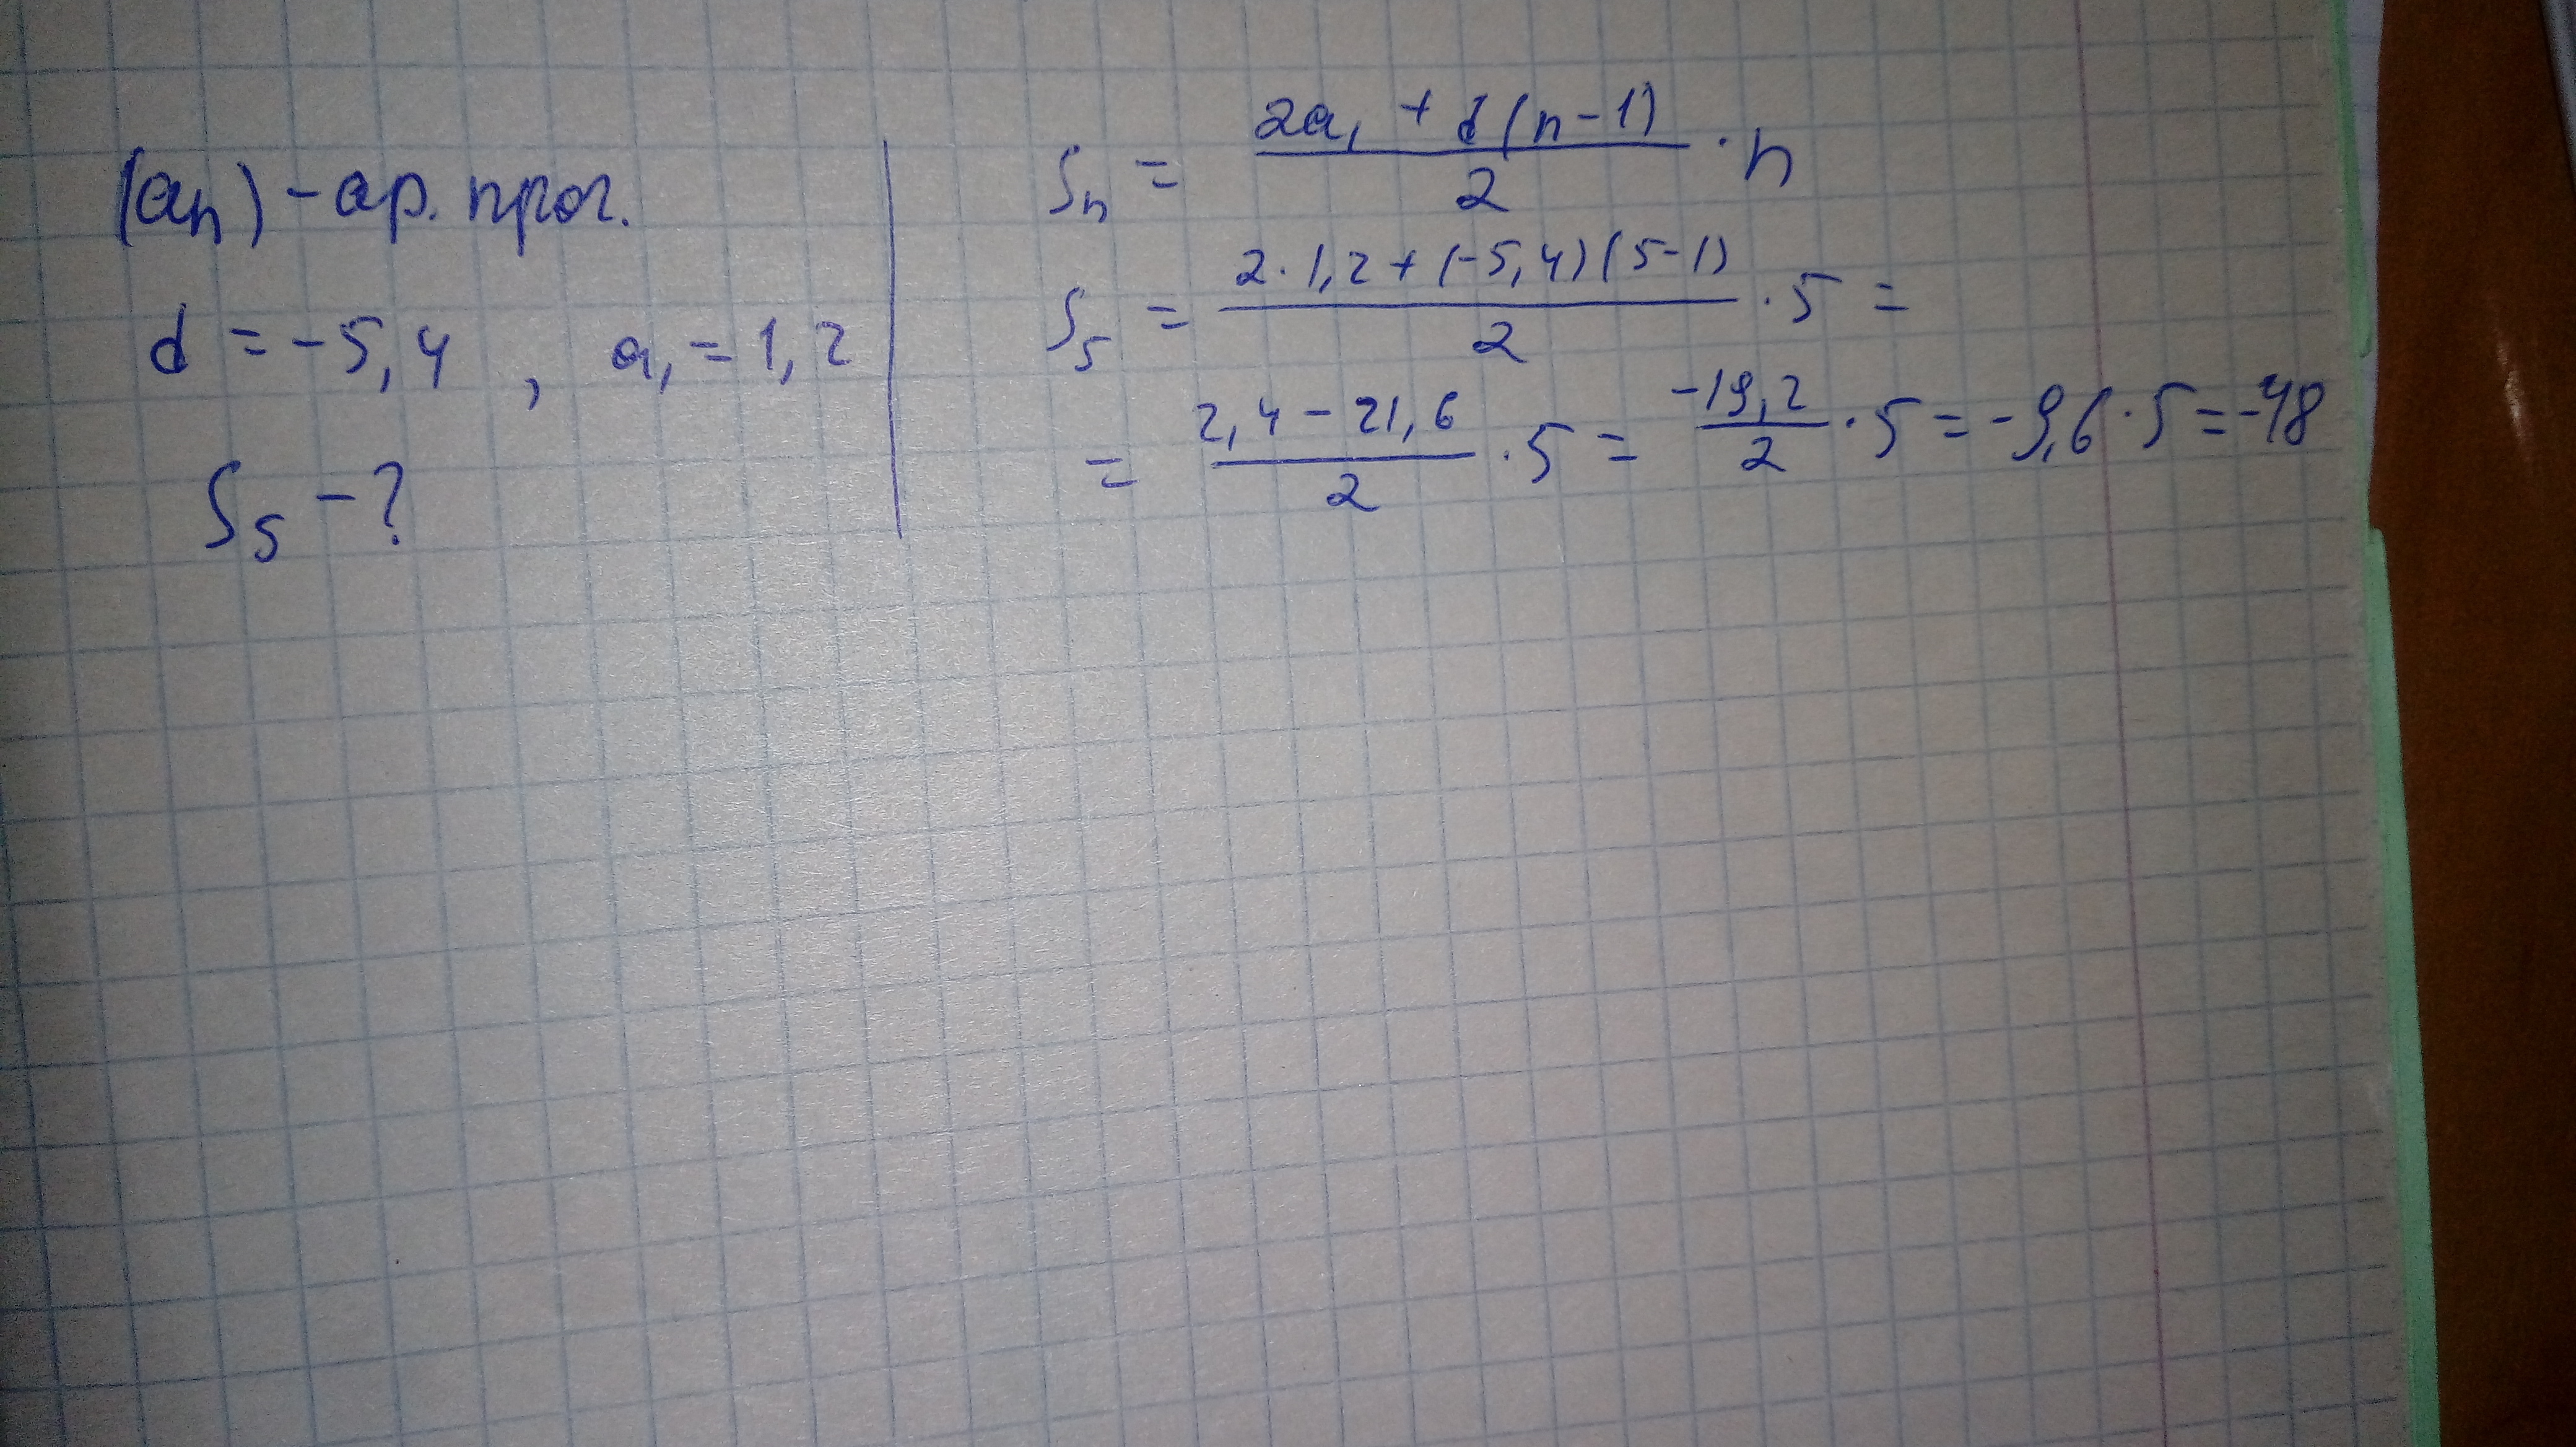 (aₙ) - ар. прог.
d = -5,4 , a₁ = 1,2
S₅ - ?
Sₙ = (2a₁ + d(n-1))/2 · n
S₅ = (2·1,2 + (-5,4)(5-1))/2 · 5 =
= (2,4 - 21,6)/2 · 5 = (-19,2)/2 · 5 = -9,6 · 5 = -48